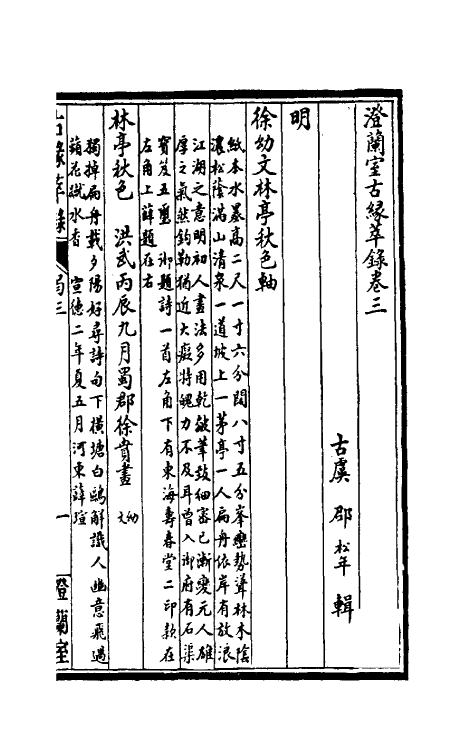 澄蘭室古緣萃錄卷三
古虞 邵松年 輯
明
徐幼文林亭秋色軸
紙本水墨高二尺一寸六分闊八寸五分峯巒勢聳林木陰
濃松蔭滿山清泉一道坡上一茅亭一人扁舟依岸有放浪
江湖之意明初人畫法多用乾皴筆致細密已漸變元人雄
厚之氣然鈎勒猶近大癡特魄力不及耳曾入御府有石渠
寶笈五璽 御題詩一首左角下有東海壽春堂二印款在
左角上薛題在右
林亭秋色 洪武丙辰九月蜀郡徐賁畫 幼文
獨掉扁舟載夕陽好尋詩句下橫塘白鷗解識人幽意飛過
蘋花蹴水香 宣德二年夏五月河東薛瑄
古緣萃錄 卷三 一 澄蘭室